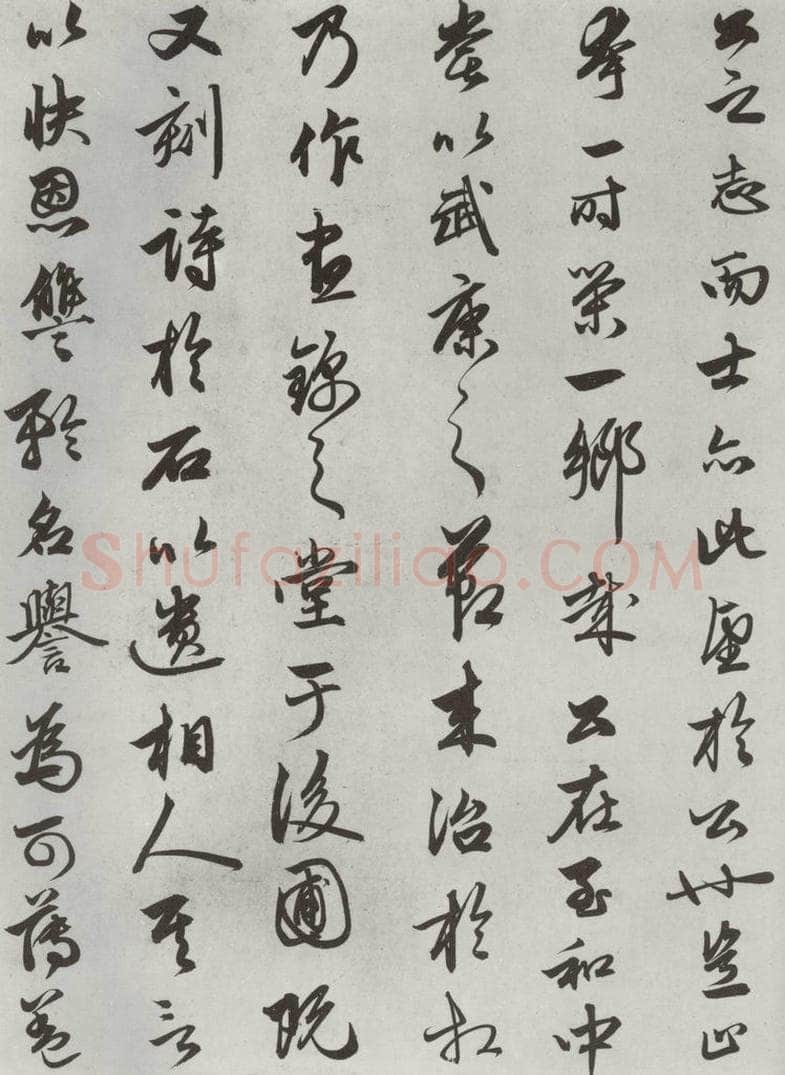 公之志而士亦此望於公也豈止
夸一时榮一鄉哉公在至和中
嘗以武康之節来治於相
乃作晝錦之堂于後圃既
又刻詩於石以遺相人其言
以快恩讐矜名譽為可薄盖
Shufaziliao.COM